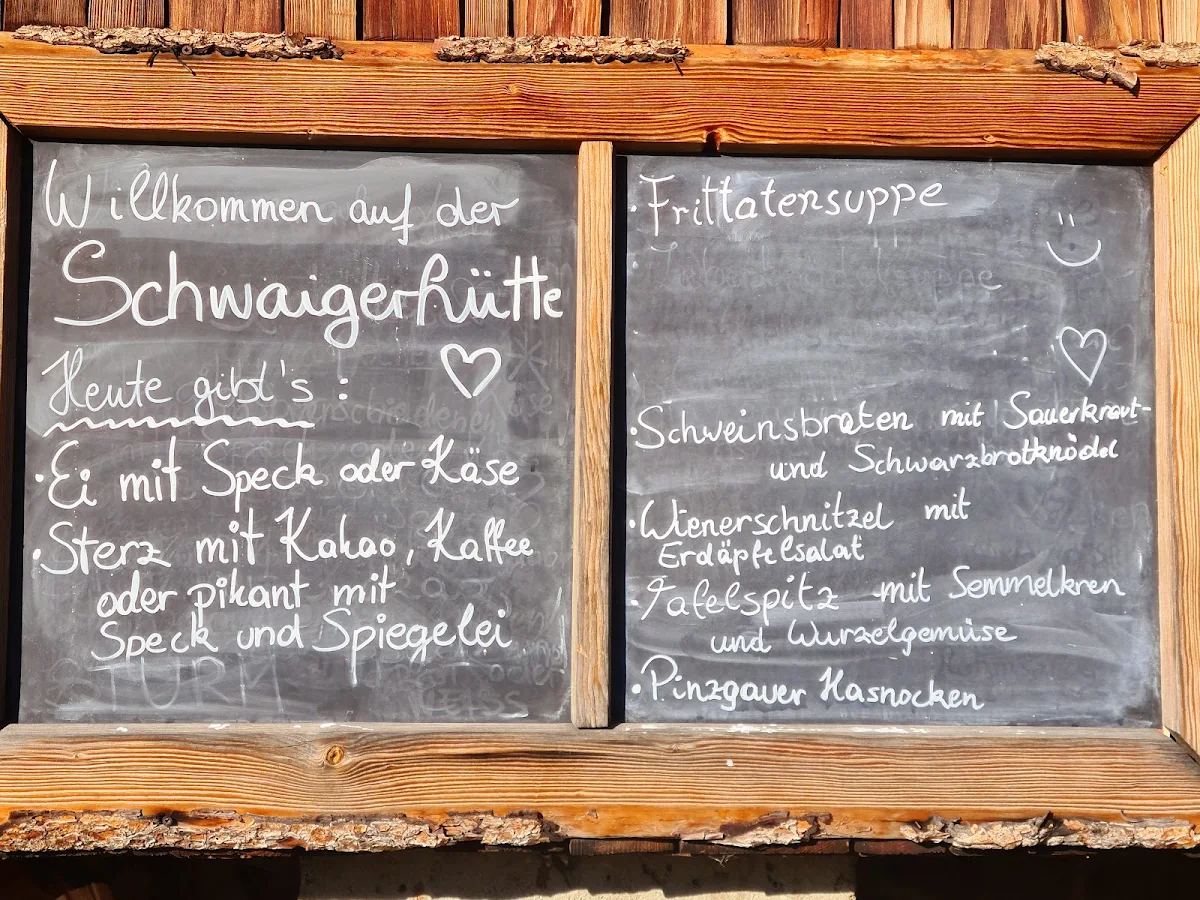 Willkommen auf der
Schwaigerhütte
Heute gibt's :
• Ei mit Speck oder Käse
• Sterz mit Kakao, Kaffee
oder pikant mit
Speck und Spiegelei
STURM
• Frittatensuppe
• Schweinsbraten mit Sauerkraut-
und Schwarzbrotknödel
• Wienerschnitzel mit
Erdäpfelsalat
• Tafelspitz mit Semmelkren
und Wurzelgemüse
• Pinzgauer Kasnocken